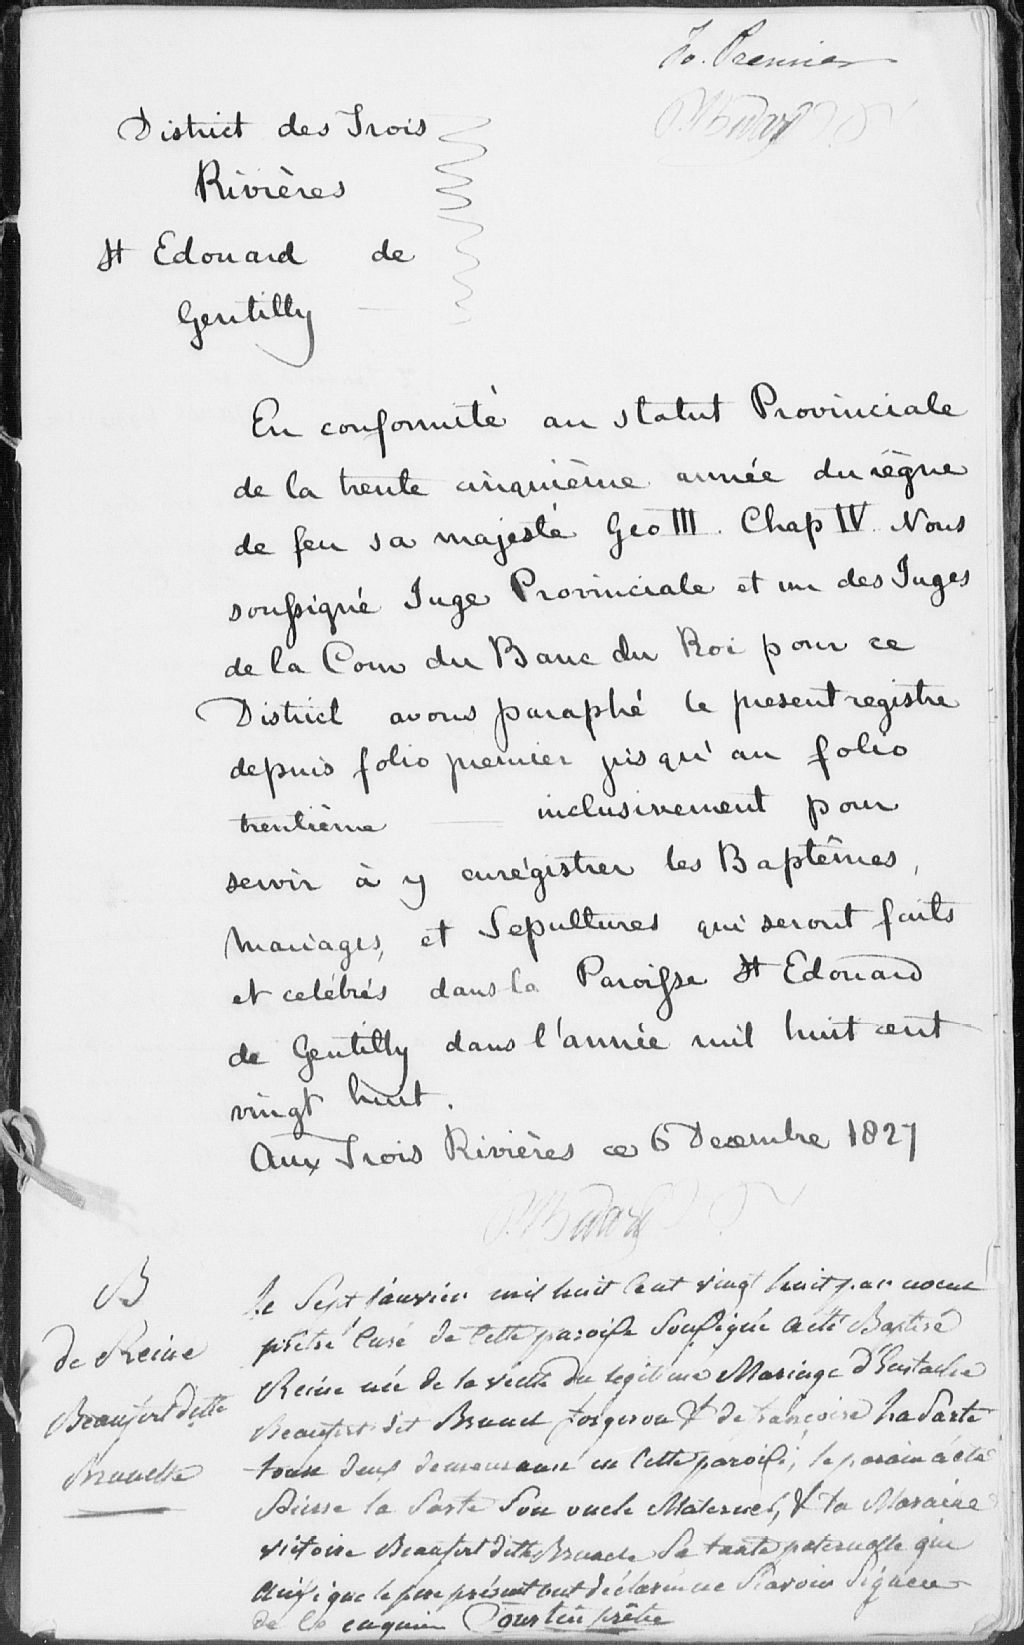 fo. Premier
District des Trois
Rivières
St Edouard de
Gentilly
En conformité au statut Provinciale
de la trente cinquième année du règne
de feu sa majesté Geo III. Chap IV. Nous
soussigné Juge Provinciale et un des Juges
de la Cour du Banc du Roi pour ce
District avons paraphé le present registre
depuis folio premier jusqu'au folio
trentième inclusivement pour
servir à y enrégistrer les Baptêmes,
mariages, et Sepultures qui seront faits
et celébrés dans la Paroisse St Edouard
de Gentilly dans l'année mil huit cent
vingt huit.
Aux Trois Rivières ce 6 Decembre 1827
B
de Reine
Beaufort dette
Brunelle
le Sept janvier mil huit Cent vingt huit par nous
prêtre Curé de Cette paroisse Soussigné a été Baptisé
Reine née de la veille du legitime Mariage d'Eustache
Beaufort dit Brunel forgeron & de françoise La Sarte
tous deux demeurant en Cette paroisse; le parain a été
Pierre la Sarte Son oncle Maternel, & la Maraine
victoire Beaufort ditte Brunelle Sa tante paternelle qui
ainsi que le pere présent ont déclaré ne Savoir Signer
de Ce enquis Courtin prêtre